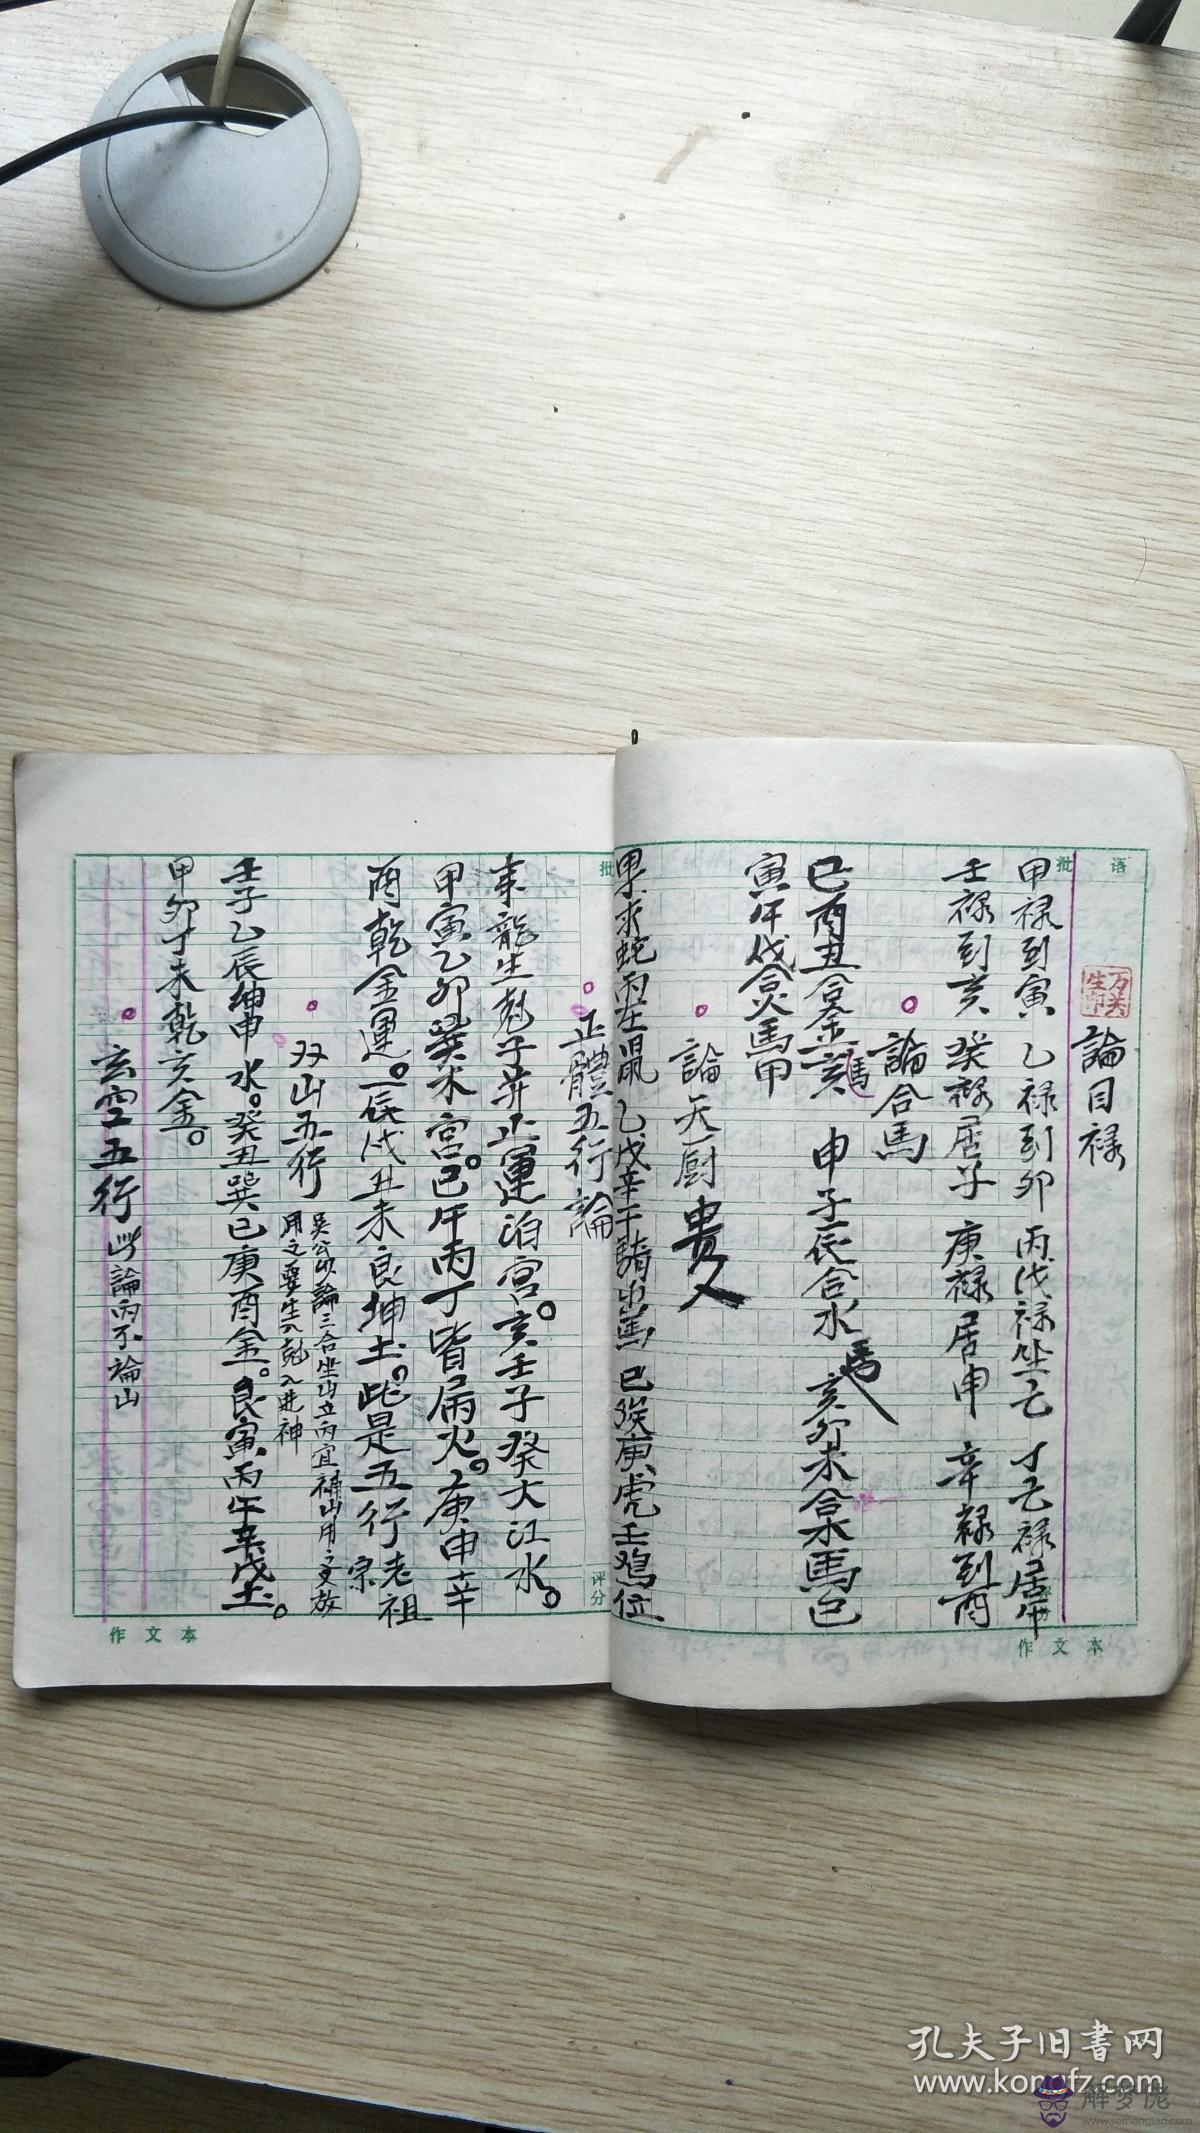 批 语
万关生印
論目禄
甲禄到寅 乙禄到卯 丙戊禄坐巳 丁己禄居午
壬禄到亥 癸禄居子 庚禄居申 辛禄到酉
論合馬
巳酉丑合金亥馬 申子辰合水馬 亥卯未合木馬巳
寅午戌合火馬申
論天厨貴人
甲求蛇丙在鼠 乙戊辛干騎出馬 巳 庚虎壬鸡位
评分
作文本
批
正體五行論
来龍生剋子并正運泊宮。亥壬子癸大江水。
甲寅乙卯巽木宮。巳午丙丁皆属火。庚申辛
酉乾金運。辰戌丑未艮坤土。此是五行老祖宗
双山五行
吴公 論三合坐山立丙宜補山用之更放
用之要生入剋入进神
壬子乙辰坤申水。癸丑巽巳庚酉金。艮寅丙午辛戌土。
甲卯丁未乾亥金。
玄空五行 此論丙不論山
评分
作文本
孔夫子旧书网
www.kongfz.com
解梦佬
www.jiemenglao.com